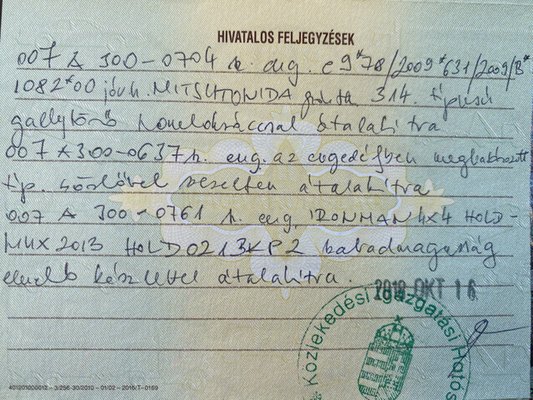 HIVATALOS FELJEGYZÉSEK
007 A 300-0704 h. eng. e9*78/2009*631/2009/B*
1082*00 jóvh. MITSUTONIDA gyárt. 314. típusú
gallytörő homlokráccsal átalakítva
007 A 300-0637 h. eng. az engedélyben meghatározott
típ. csörlővel vezetten átalakítva
007 A 300-0761 h. eng. IRONMAN 4x4 HOLD-
MUX2013 HOLD0213KP2 szabadmagasság
emelő készlettel átalakítva.
2018 OKT 16
Közlekedési Igazgatási Ható
401201000012 – 3/256-30/2010 – 01/02 – 2016/T-0169